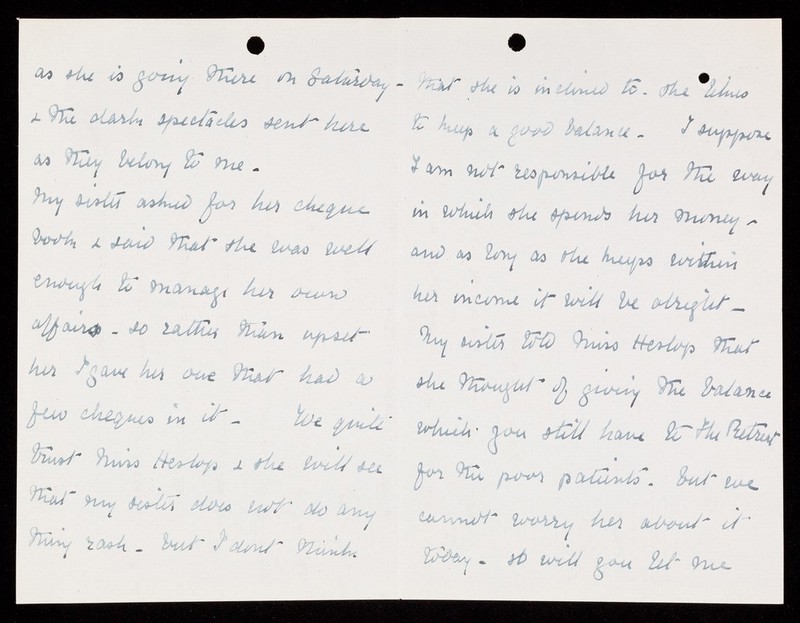 as she is going there on Saturday -
& the dark spectacles sent here
as they belong to me -
My sister asked for her cheque
book & said that she was well
enough to manage her own
affairs - so rather than upset
her I gave her one that had a
few cheques in it - We quite
trust Miss Heslop & she will see
that my sister does not do any
thing rash - but I dont think
that she is inclined to - she likes
to keep a good balance - I suppose
I am not responsible for the way
in which she spends her money -
and as long as she keeps within
her income it will be alright -
My sister told Miss Heslop that
she thought of giving the balance
which you still have to The Retreat
for the poor patients - but we
cannot worry her about it
today - so will you let me